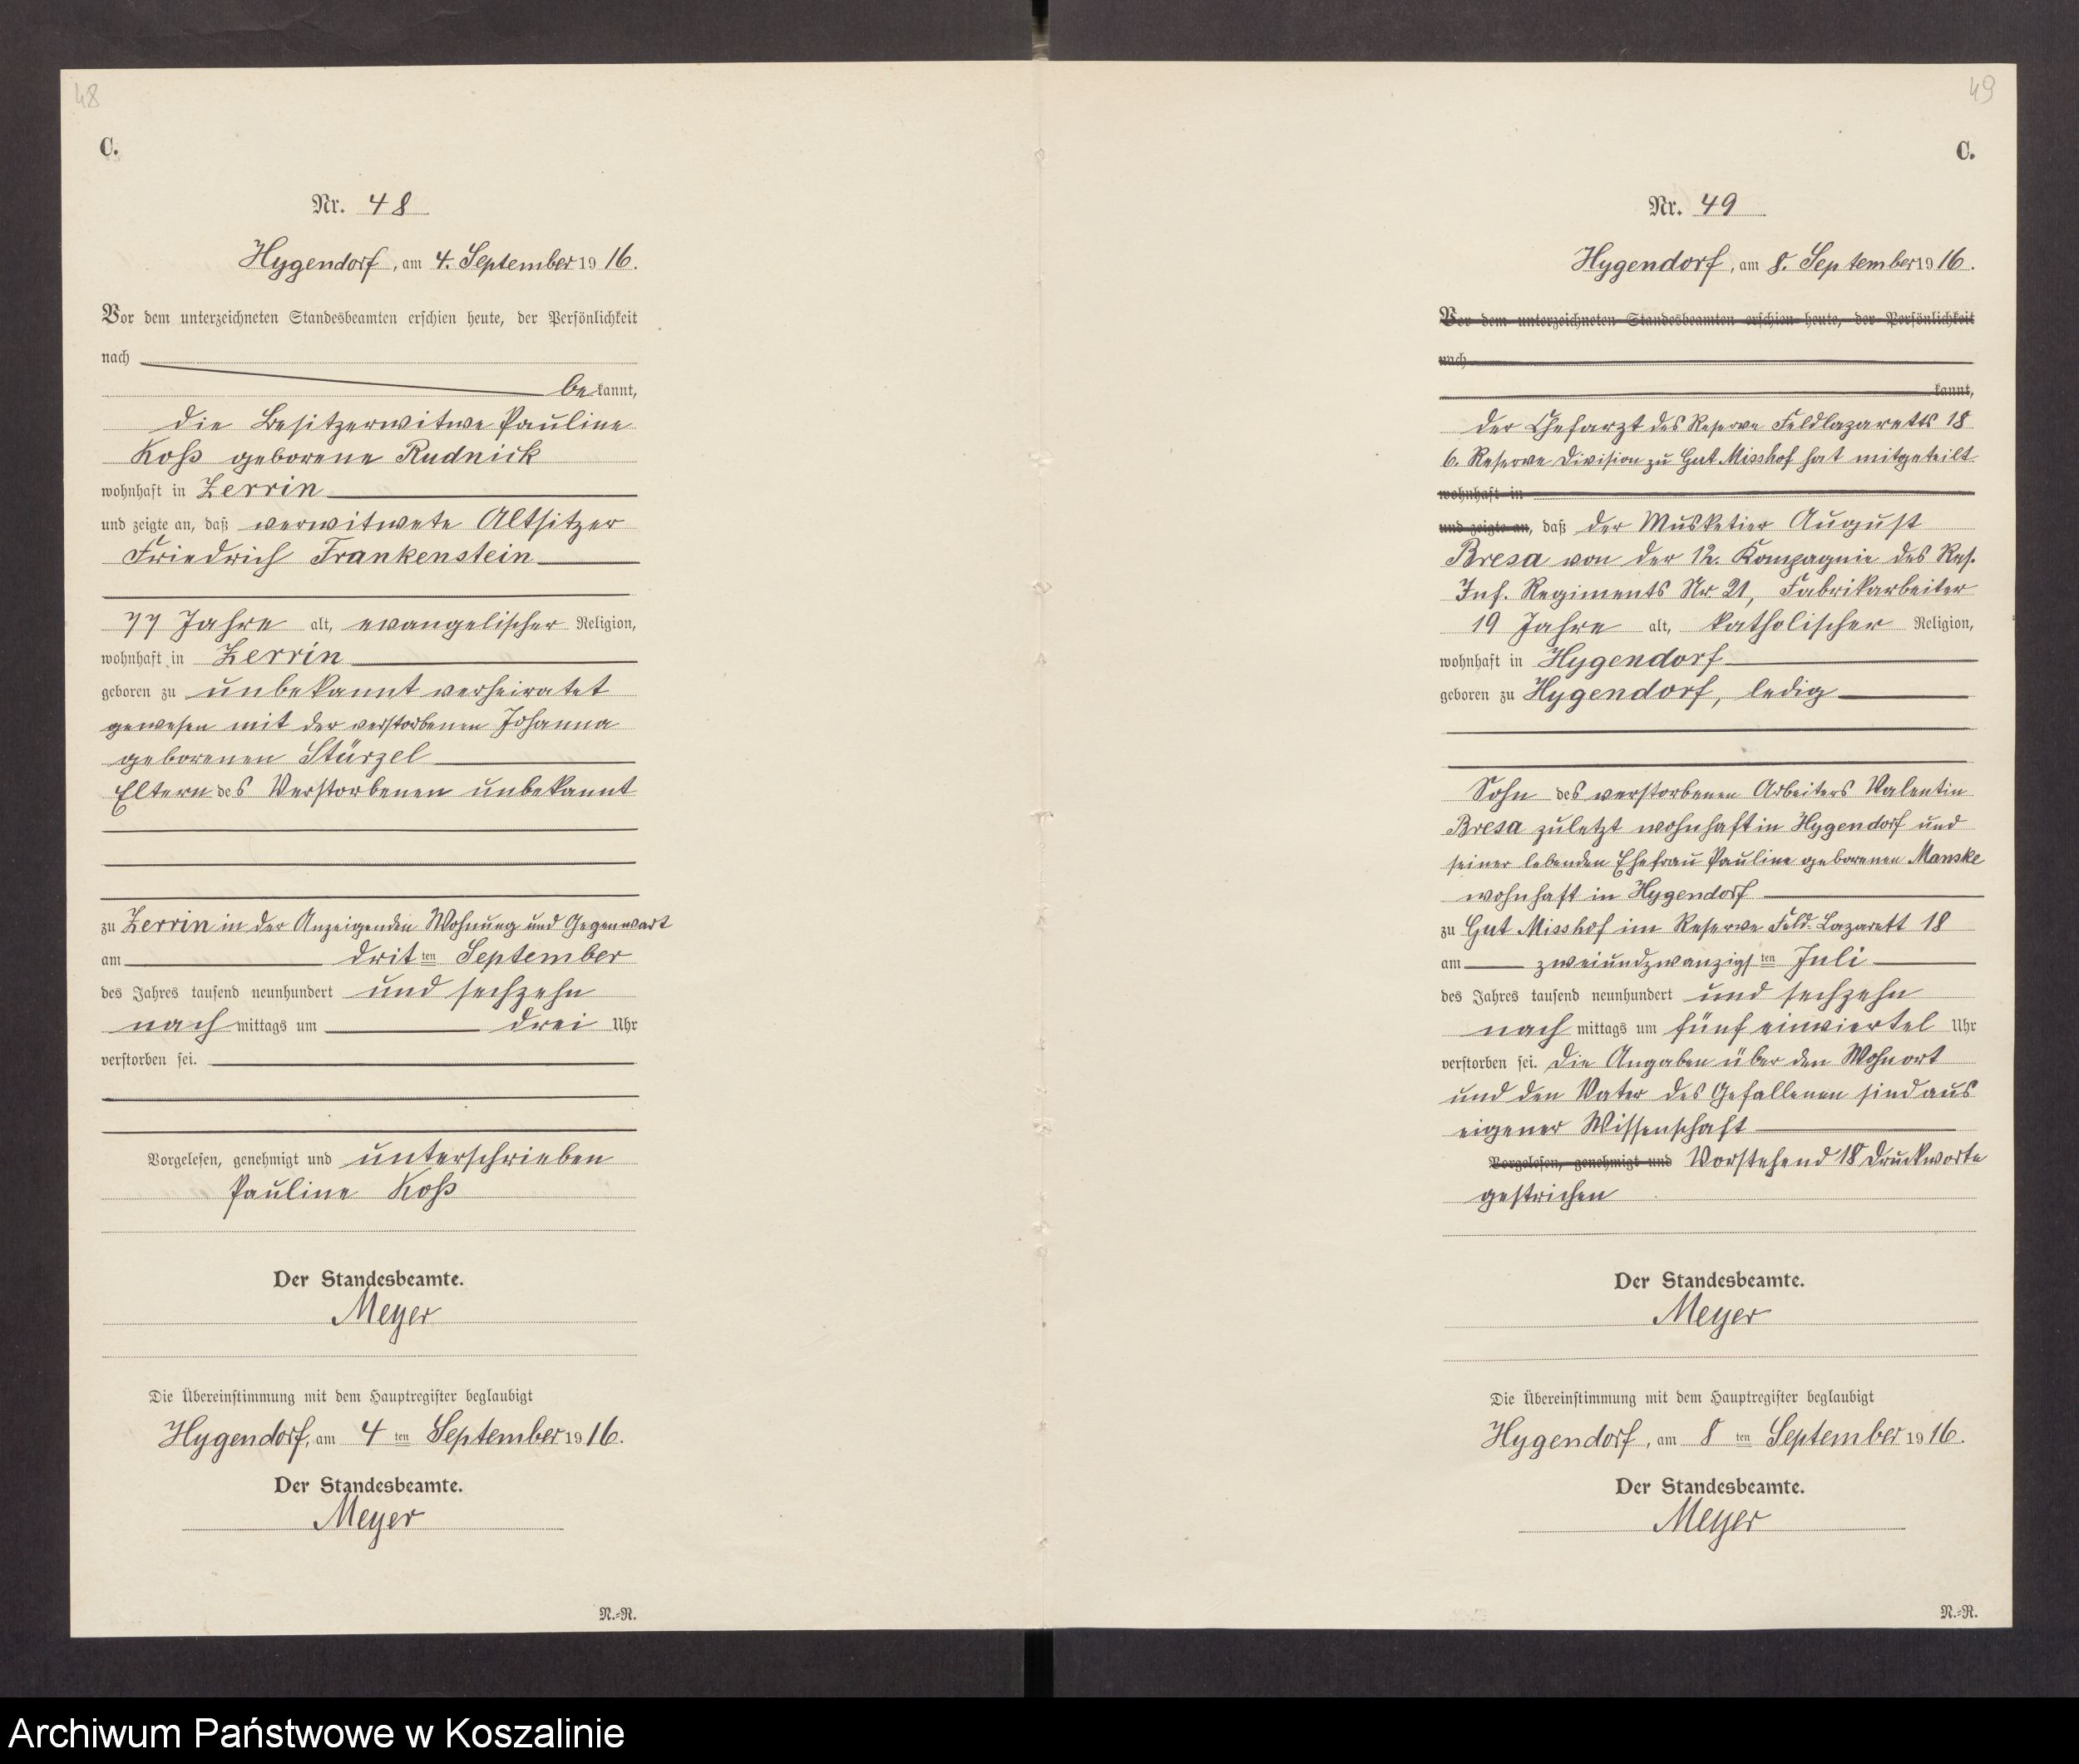 48
C.
Nr. 48
Hygendorf, am 4. September 1916.
Vor dem unterzeichneten Standesbeamten erschien heute, der Persönlichkeit
nach
bekannt,
die Besitzerwitwe Pauline
Koß geborene Rudnick
wohnhaft in Zerrin
und zeigte an, daß verwitwete Altsitzer
Friedrich Frankenstein
77 Jahre alt, evangelischer Religion,
wohnhaft in Zerrin
geboren zu unbekannt verheiratet
gewesen mit der verstorbenen Johanna
geborenen Stürzel
Eltern des Verstorbenen unbekannt
zu Zerrin in der Anzeigenden Wohnung und Gegenwart
am dritten September
des Jahres tausend neunhundert und sechzehn
nachmittags um drei Uhr
verstorben sei.
Vorgelesen, genehmigt und unterschrieben
Pauline Koß
Der Standesbeamte.
Meyer
Die Übereinstimmung mit dem Hauptregister beglaubigt
Hygendorf, am 4ten September 1916.
Der Standesbeamte.
Meyer
N.=R.
49
C.
Nr. 49
Hygendorf, am 8. September 1916.
Vor dem unterzeichneten Standesbeamten erschien heute, der Persönlichkeit
nach
kannt,
der Chefarzt des Reserve Feldlazaretts 18
6. Reserve Division zu Gut Misshof hat mitgeteilt
wohnhaft in
und zeigte an, daß der Musketier August
Bresa von der 12. Kompagnie des Res.
Inf. Regiments Nr 21, Fabrikarbeiter
19 Jahre alt, katholischer Religion,
wohnhaft in Hygendorf
geboren zu Hygendorf, ledig
Sohn des verstorbenen Arbeiters Valentin
Bresa zuletzt wohnhaft in Hygendorf und
seiner lebenden Ehefrau Pauline geborenen Manske
wohnhaft in Hygendorf
zu Gut Misshof im Reserve Feld-Lazarett 18
am zweiundzwanzigsten Juli
des Jahres tausend neunhundert und sechzehn
nachmittags um fünf einviertel Uhr
verstorben sei. Die Angaben über den Wohnort
und den Vater des Gefallenen sind aus
eigener Wissenschaft
Vorgelesen, genehmigt und Vorstehend 18 Druckworte
gestrichen
Der Standesbeamte.
Meyer
Die Übereinstimmung mit dem Hauptregister beglaubigt
Hygendorf, am 8ten September 1916.
Der Standesbeamte.
Meyer
N.=R.
Archiwum Państwowe w Koszalinie